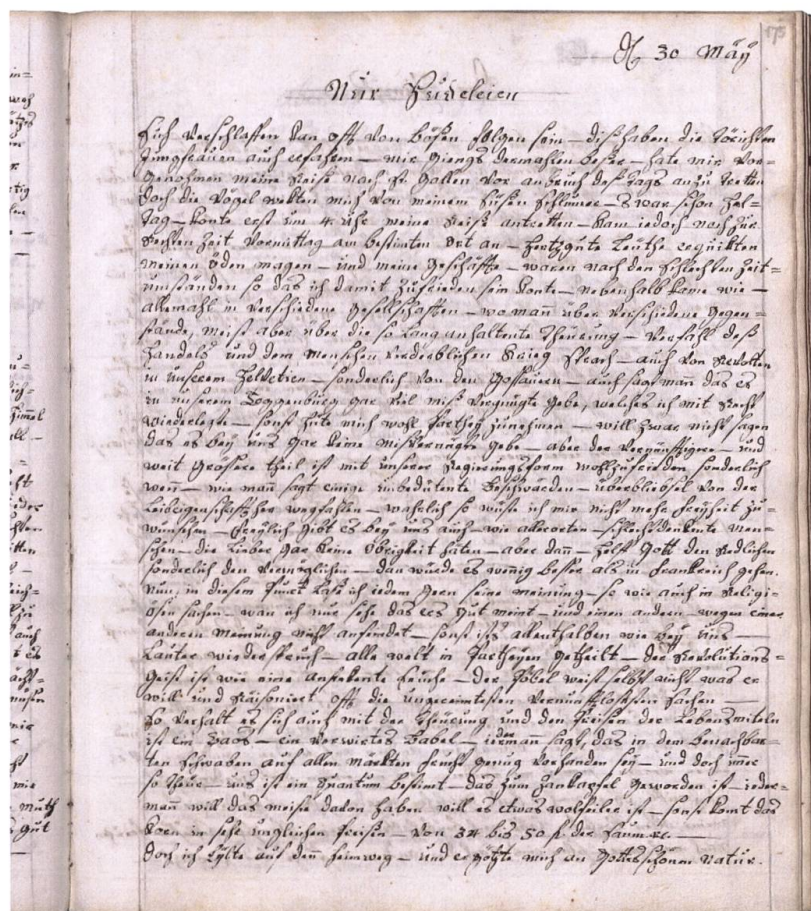 175
30 May
Nur Sudeleien
sich verschlaffen kan offt von bösen folgen sein – diß haben die törichten
Jungfrauen auch erfahren – mir giengs dermahlen beßer – hate mir vor=
genohmen meine Reise nach St. Gallen vor anbruch deß tags anzu tretten
doch die Vögel wekten mich von meinem süßen schlumer – es war schon hel=
tag – konte erst um 4. uhr meine Reise antretten – kam iedoch noch zur
rechten Zeit vormittag am bestimten ort an – hertzgute leuthe erquikten
meinen öden magen – und meine geschäffte – waren nach den schlechten Zeit=
umständen so das ich damit zufrieden sein konte – nebenhalb kame wie –
allemahl in verschiedene gesellschafften – wo man über verschiedene gegen=
stände, meist aber über die so lang anhaltente Theurung – verfahl deß
handels und dem menschen verderblichen Krieg sprach – auch von Revolten
in unserem Helvetien – sonderlich von den Goßauern – auch sagt man das es
in unserem Toggenburg gar viel miß vergnügte gebe, welches ich mit Recht
wiederlegte – sonst hüte mich wohl parthey zunehmen – will zwar nicht sagen
das es bey uns gar keine misvernügte gebe – aber der vernünfftigere – und
weit grössere theil ist mit unserer Regierungsform wohlzufrieden sonderlich
wen – wie man sagt einige unbedeutente beschwerden – überbliebsel von der
leibeigenschafft her wegfahlen – wahrlich so wüste ich mir nicht mehr freyheit zu=
wünschen – freylich gibt es bey uns auch – wie allerorten – schlechtdenkente men=
schen – die lieber gar keine obrigkeit häten – aber dan – helff Gott den Redlichen
sonderlich den vermöglichen – dan würde es wenig besser als in frankreich gehen.
nun, in diesem punct laße ich iedem gern seine meinung – so wie auch in Religi=
ösen sachen – wan ich nur sehe das ers gut meint – und einen andern – wegen einer
anderen meinung nicht anfeindet – sonst ists allenthalben wie bey uns –
lauter wiederspruch – alle welt in partheyen getheilt – der Revolutions=
geist ist wie eine anstekente seuche – der Pöbel weist selbst nicht was er
will und Räisoniert offt die ungereimtesten vernunfftlosesten sachen –
so verhalt es sich auch mit der theurung und den preisen der lebensmiteln
ist ein Caos – ein verwirtes Babel – ieder man sagt, das in dem benachbar=
ten schwaben auf allen märkten frucht genug vorhanden sey – und doch imer
so theur – uns ist ein quantum bestimt – das zum zankapfel geworden ist – ieder=
man will das meiste davon haben will es etwas wolfeiler ist – sonst komt das
korn in sehr ungleichen preisen – von 34 bis 50 f. der
doch ich eylte auf den heimweg – und ergözte mich an gottes schönen natur.